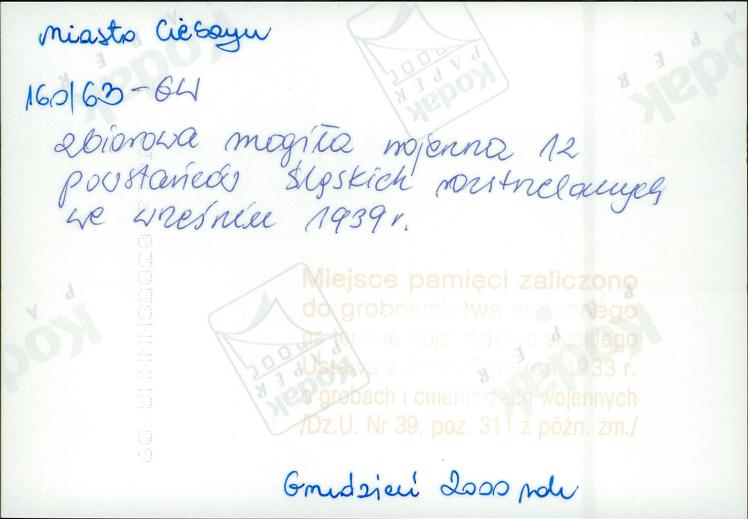 Miasto Cieszyn
160/63-GW
zbiorowa mogiła wojenna 12
powstańców śląskich rozstrzelanych
we wrześniu 1939 r.
Miejsce pamięci zaliczono
do grobownictwa wojennego
na terenie województwa śląskiego
Ustawa z dnia 28 marca 1933 r.
o grobach i cmentarzach wojennych
/Dz.U. Nr 39, poz. 311 z późn. zm./
Grudzień 2000 roku
Kodak
PAPER